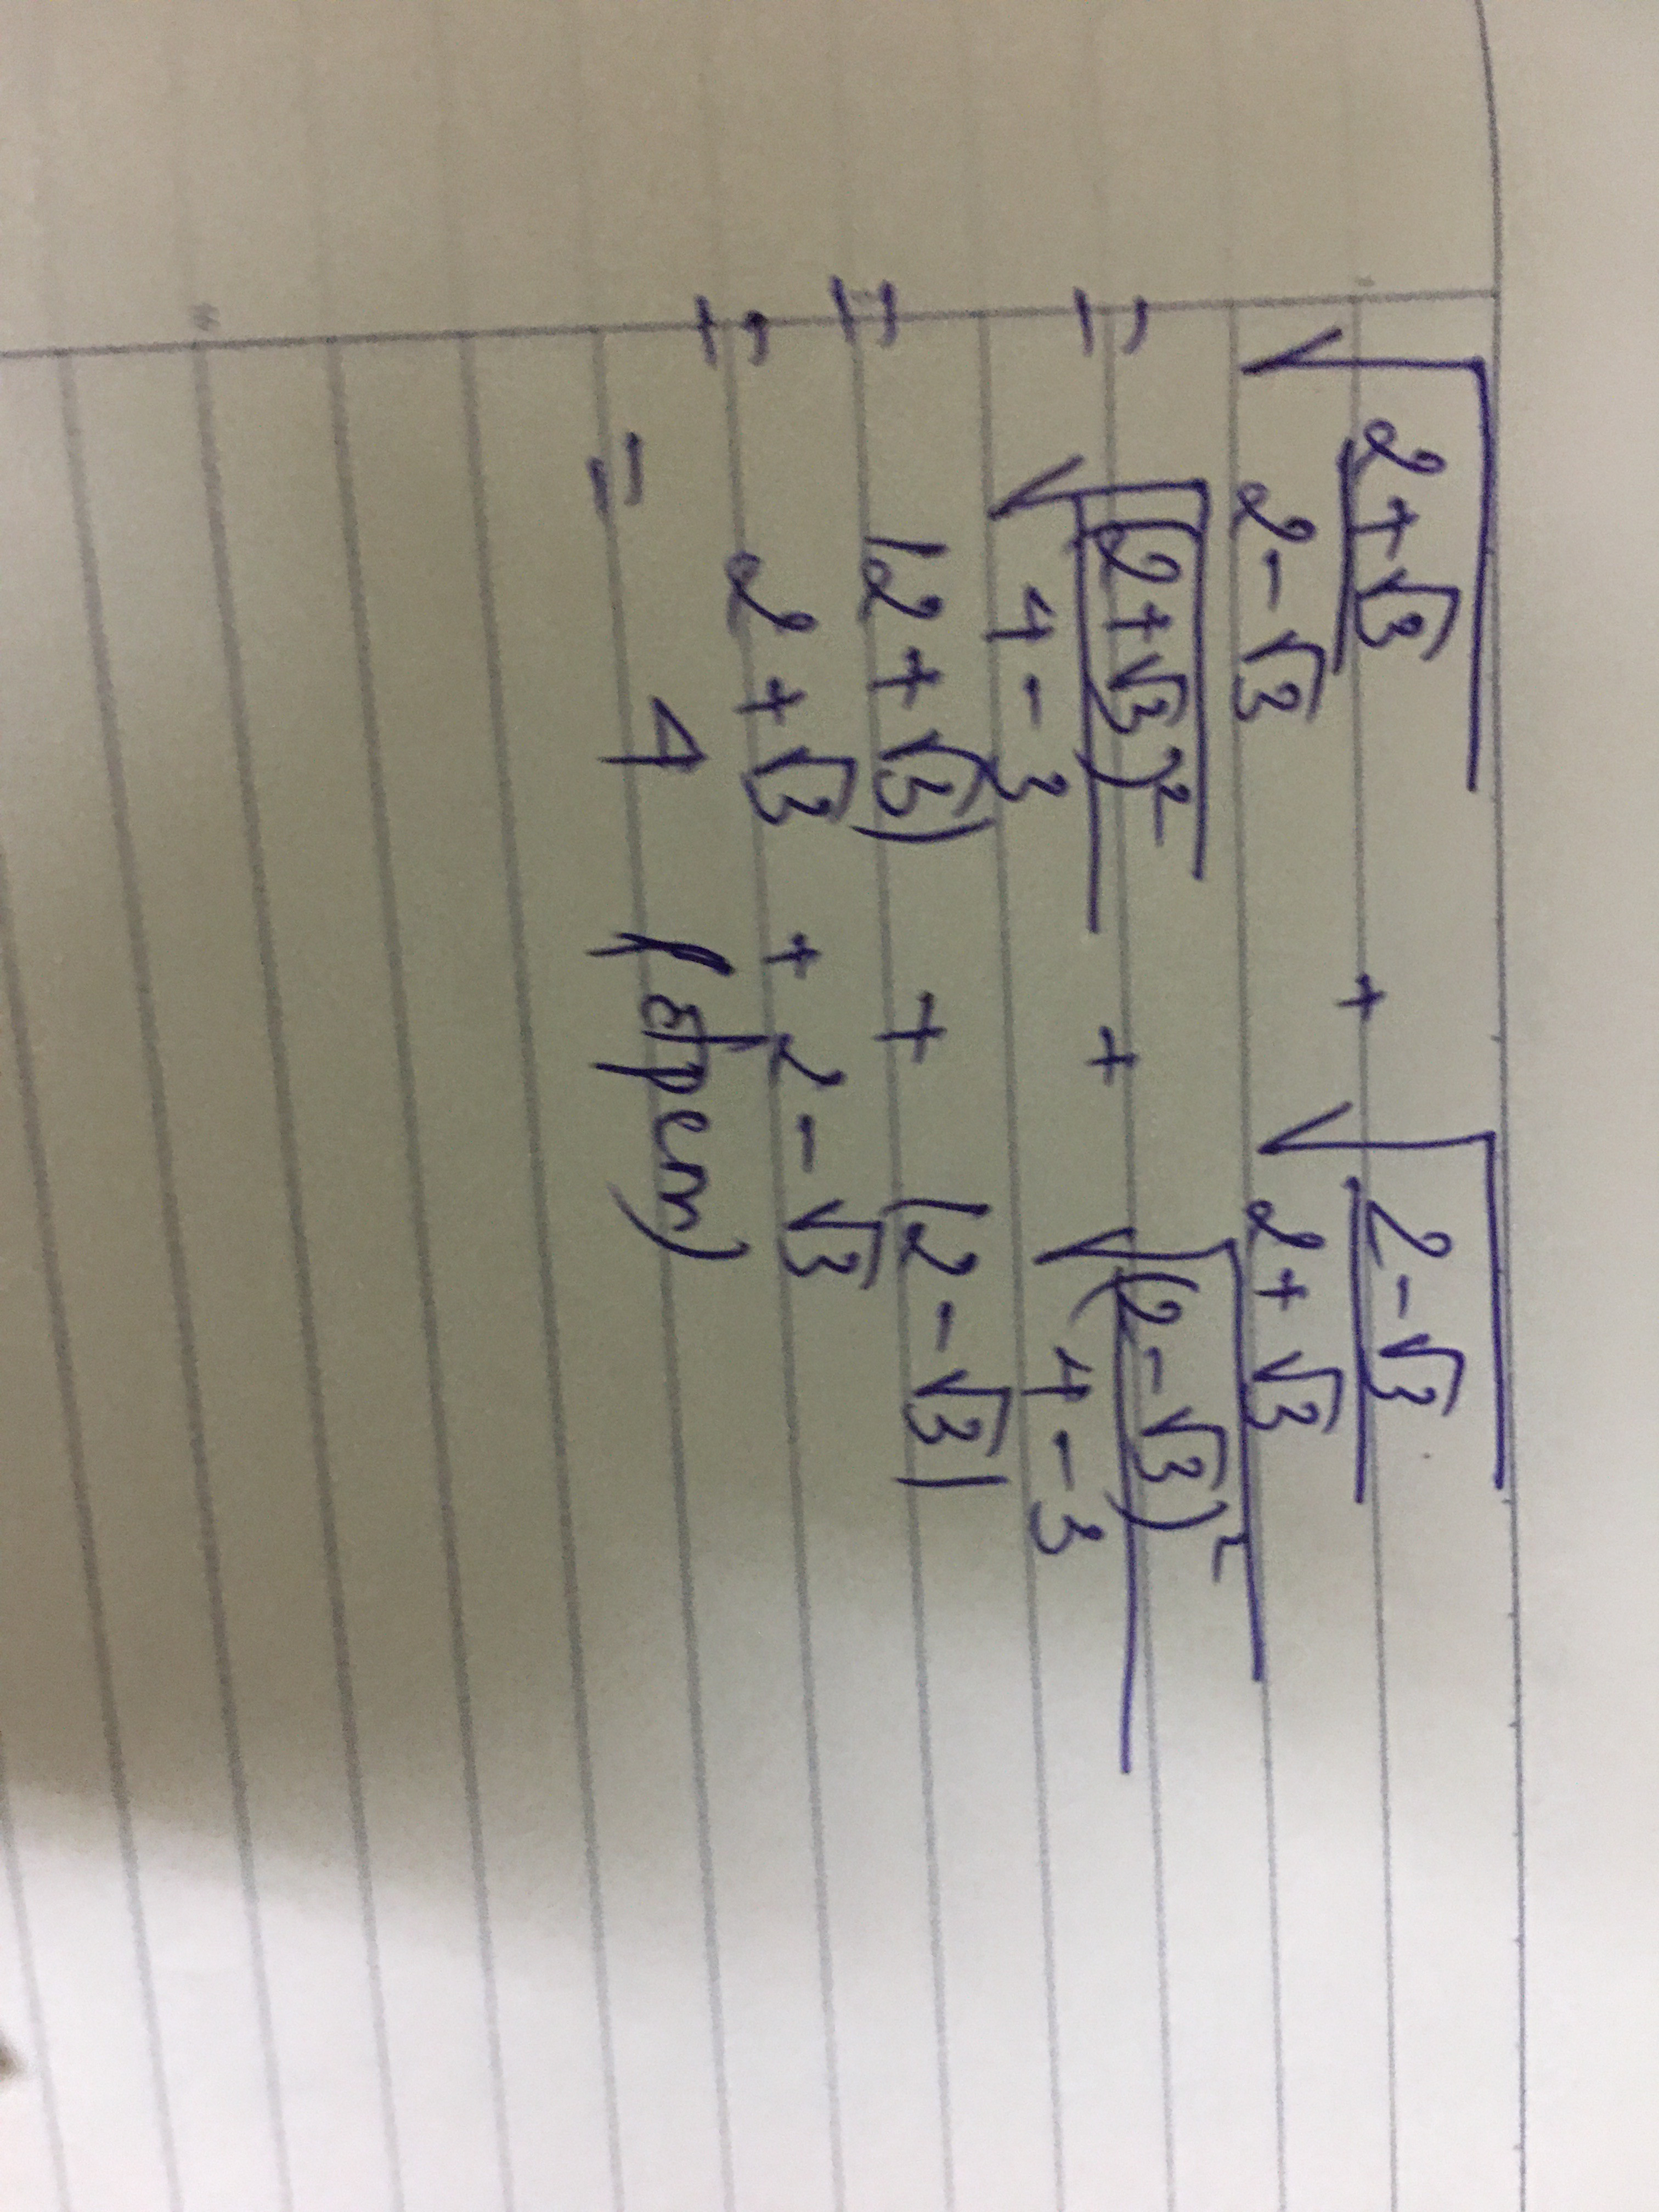 √((2+√3)/(2-√3)) + √((2-√3)/(2+√3))
= √((2+√3)²/(4-3)) + √((2-√3)²/(4-3))
= |2+√3| + |2-√3|
= 2+√3 + 2-√3
= 4 (đpcm)